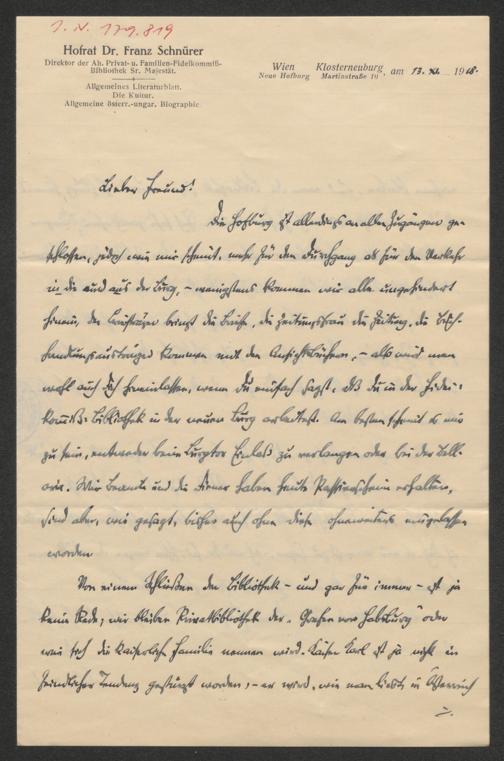 I. N. 179.819
Hofrat Dr. Franz Schnürer
Direktor der Ah. Privat- u. Familien-Fideikommiß-
Bibliothek Sr. Majestät.
Allgemeines Literaturblatt.
Die Kultur.
Allgemeine österr.-ungar. Biographie.
Wien Klosterneuburg, am 13. XI. 1918.
Neue Hofburg Martinstraße 16
Lieber Freund!
Die Hofburg ist allerdings an allen Zugängen ge-
schlossen, jedoch wie mir scheint, mehr für den Durchgang als für den Verkehr
in die und aus der Burg, – wenigstens kommen wir alle ungehindert
hinein, der Briefträger bringt die Briefe, die Zeitungsfrau die Zeitung, die Buch-
handlungsausträger kommen mit den Ansichtsbüchern, – also wird man
wohl auch Dich hereinlassen, wenn Du einfach sagst, daß Du in der Fidei-
kommiß-Bibliothek in der neuen Burg arbeitest. Am besten scheint es mir
zu sein, entweder beim Burgtor Einlaß zu verlangen oder bei der Bell-
aria. Wir Beamte und die Diener haben heute Passierschein erhalten,
sind aber, wie gesagt, bisher auch ohne diese ohneweiters eingelassen
worden.
Von einem Schließen der Bibliothek – und gar für immer – ist ja
keine Rede; wir bleiben Privatbibliothek der „Grafen von Habsburg" oder
wie sich die kaiserliche Familie nennen wird. Kaiser Karl ist ja nicht in
feindlicher Tendenz gestürzt worden; – er wird, wie man liest, in Österreich